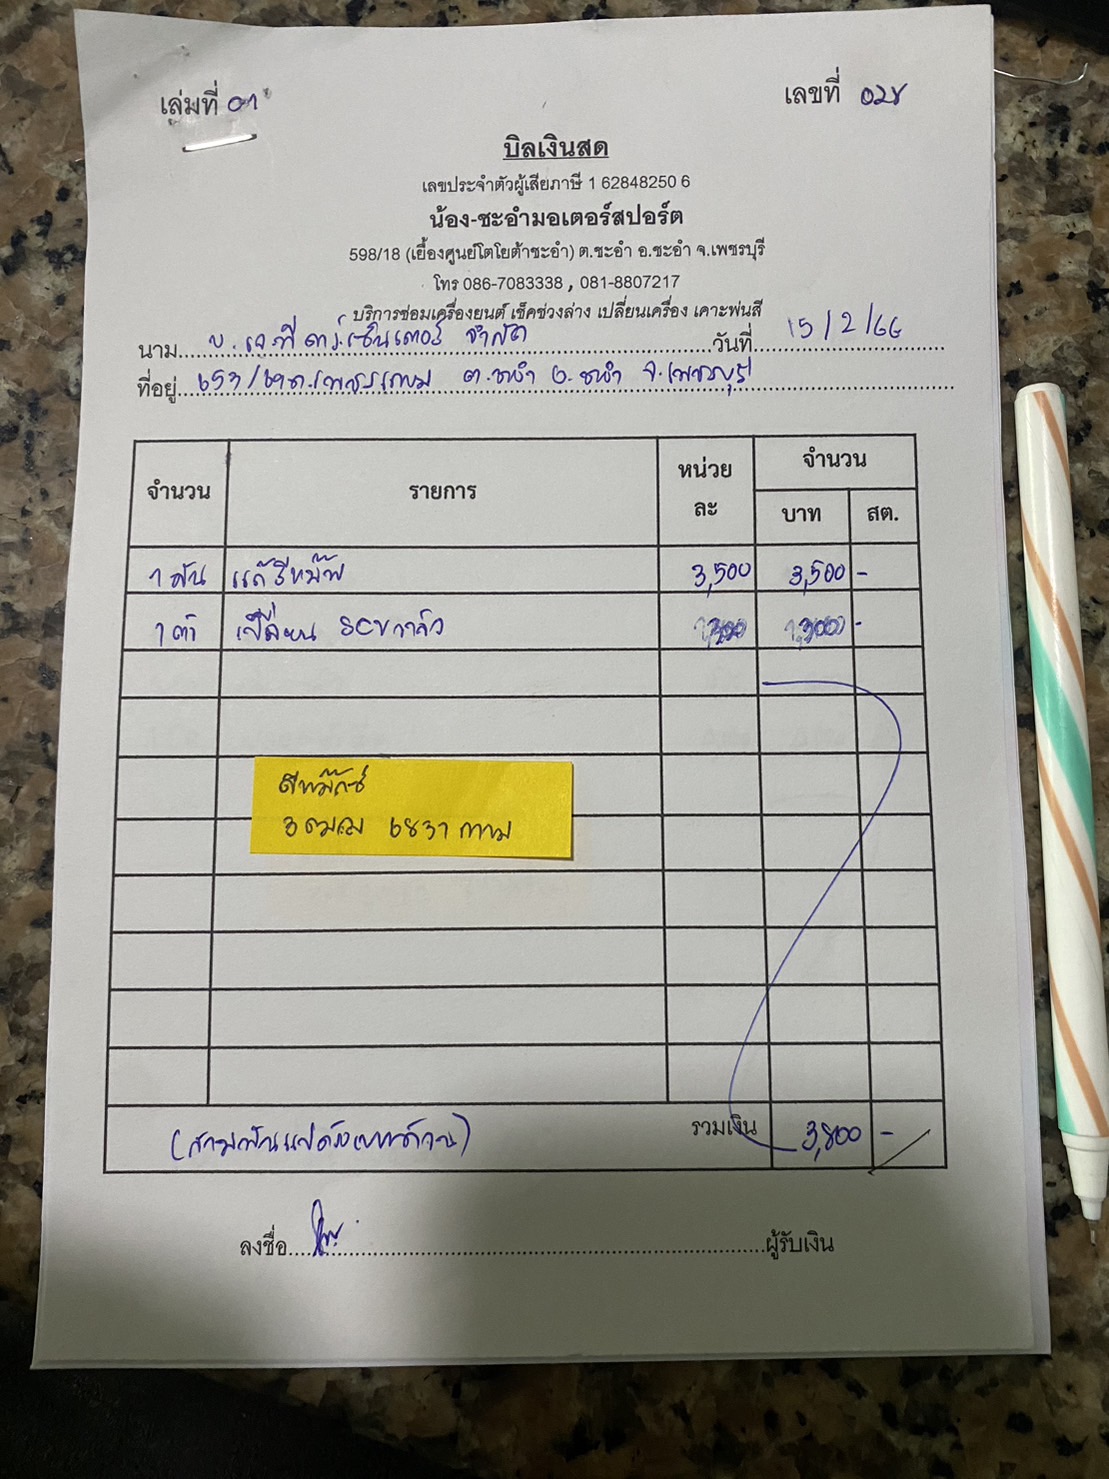 เล่มที่ 01
เลขที่ 028
บิลเงินสด
เลขประจำตัวผู้เสียภาษี 1 62848250 6
น้อง-ชะอำมอเตอร์สปอร์ต
598/18 (เยื้องศูนย์โตโยต้าชะอำ) ต.ชะอำ อ.ชะอำ จ.เพชรบุรี
โทร 086-7083338 , 081-8807217
บริการซ่อมเครื่องยนต์ เช็คช่วงล่าง เปลี่ยนเครื่อง เคาะพ่นสี
นาม บ. เจ.พี คาร์เซ็นเตอร์ จำกัด วันที่ 15/2/66
ที่อยู่ 653/69 ถ.เพชรเกษม ต.ชะอำ อ.ชะอำ จ.เพชรบุรี
จำนวน รายการ หน่วยละ จำนวน
บาท สต.
1 คัน แก้ 3,500 3,500 -
1 ตัว เปลี่ยน SCV -
6831 กทม
(สามพันแปดร้อยบาทถ้วน) รวมเงิน 3,800 -
ลงชื่อ ผู้รับเงิน